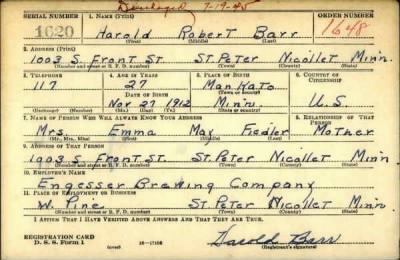 Discharged 7-19-45
SERIAL NUMBER 1. NAME (Print) ORDER NUMBER
1620 Harold Robert Barr 1648
(First) (Middle) (Last)
2. ADDRESS (Print)
1003 S. Front St. St. Peter Nicollet Minn.
(Number and street or R. F. D. number) (Town) (County) (State)
3. TELEPHONE 4. AGE IN YEARS 5. PLACE OF BIRTH 6. COUNTRY OF CITIZENSHIP
117 27 Mankato
DATE OF BIRTH (Town or county)
Nov 27 1912 Minn. U.S.
(Exchange) (Number) (Mo.) (Day) (Yr.) (State or country)
7. NAME OF PERSON WHO WILL ALWAYS KNOW YOUR ADDRESS 8. RELATIONSHIP OF THAT PERSON
Mrs. Emma May Fiedler Mother
(Mr., Mrs., Miss) (First) (Middle) (Last)
9. ADDRESS OF THAT PERSON
1003 S. Front St. St. Peter Nicollet Minn
(Number and street or R. F. D. number) (Town) (County) (State)
10. EMPLOYER'S NAME
Engesser Brewing Company
11. PLACE OF EMPLOYMENT OR BUSINESS
W. Pine St. Peter Nicollet Minn
(Number and street or R. F. D. number) (Town) (County) (State)
I AFFIRM THAT I HAVE VERIFIED ABOVE ANSWERS AND THAT THEY ARE TRUE.
REGISTRATION CARD
D. S. S. Form 1 (over) 16-17105 Harold Barr
(Registrant's signature)